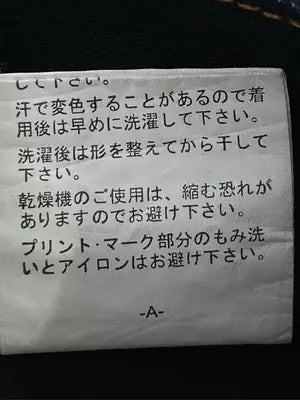 して下さい。
汗で変色することがあるので着
用後は早めに洗濯して下さい。
洗濯後は形を整えてから干して
下さい。
乾燥機のご使用は、縮む恐れが
ありますのでお避け下さい。
プリント・マーク部分のもみ洗
いとアイロンはお避け下さい。
-A-